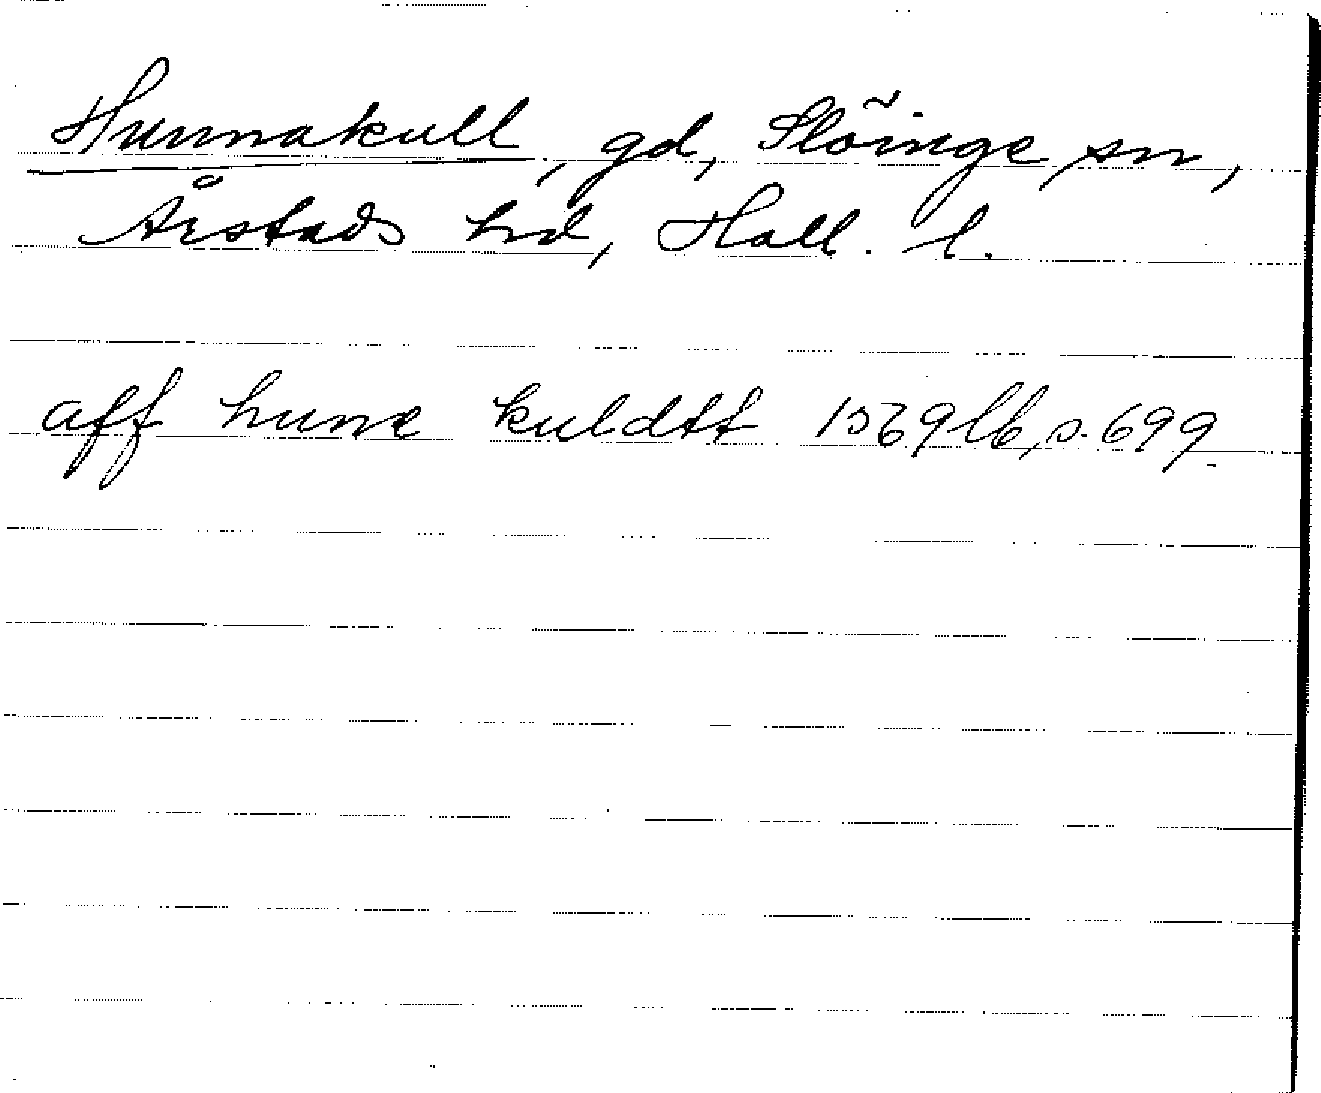 Hunnakull, gd, Slöinge sn,
Årstads hd, Hall. l.
aff hune kuldtt 1569 lb, s. 699